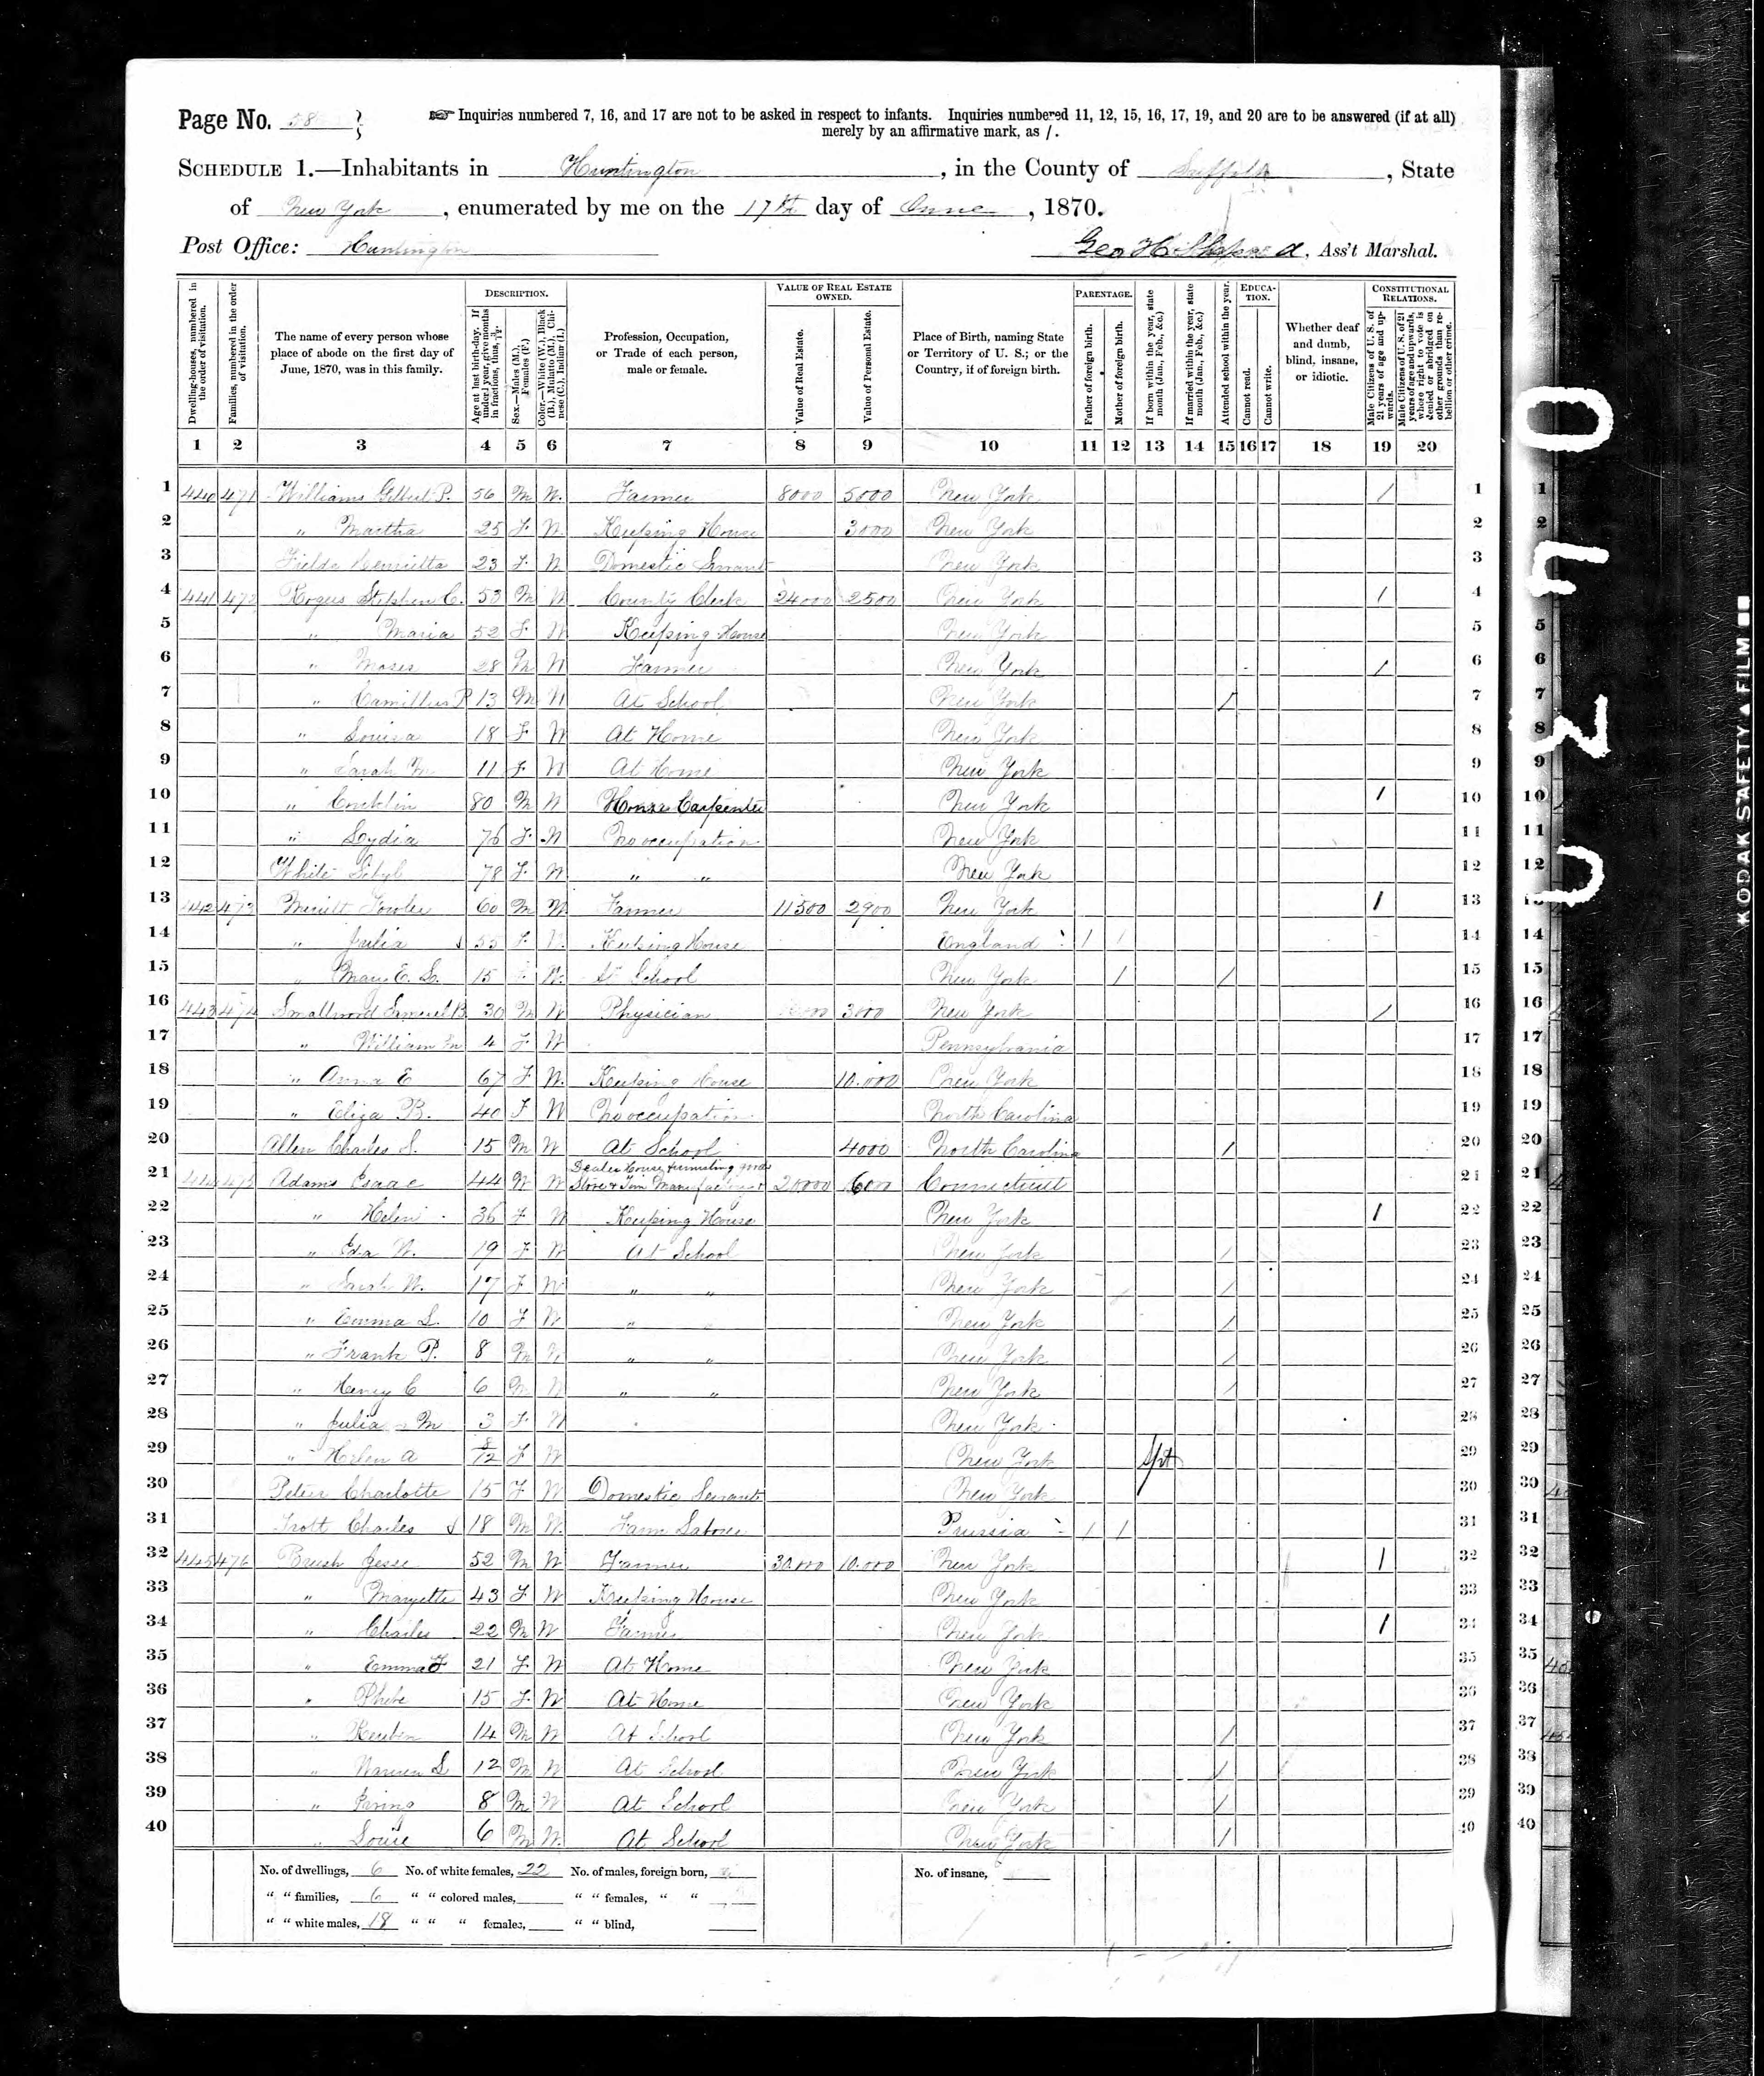 Page No. 58
☞ Inquiries numbered 7, 16, and 17 are not to be asked in respect to infants. Inquiries numbered 11, 12, 15, 16, 17, 19, and 20 are to be answered (if at all)
merely by an affirmative mark, as /.
SCHEDULE 1.—Inhabitants in Huntington, in the County of Suffolk, State
of New York, enumerated by me on the 17th day of June, 1870.
Post Office: Huntington
Geo H Shepard, Ass't Marshal.
Dwelling-houses, numbered in the order of visitation.
Families, numbered in the order of visitation.
The name of every person whose place of abode on the first day of June, 1870, was in this family.
DESCRIPTION.
Age at last birth-day. If under 1 year, give months in fractions, thus, 3/12.
Sex.—Males (M.), Females (F.)
Color.—White (W.), Black (B.), Mulatto (M.), Chinese (C.), Indian (I.)
Profession, Occupation, or Trade of each person, male or female.
VALUE OF REAL ESTATE OWNED.
Value of Real Estate.
Value of Personal Estate.
Place of Birth, naming State or Territory of U. S.; or the Country, if of foreign birth.
PARENTAGE.
Father of foreign birth.
Mother of foreign birth.
If born within the year, state month (Jan., Feb., &c.)
If married within the year, state month (Jan., Feb., &c.)
Attended school within the year.
EDUCATION.
Cannot read.
Cannot write.
Whether deaf and dumb, blind, insane, or idiotic.
CONSTITUTIONAL RELATIONS.
Male Citizens of U. S. of 21 years of age and upwards.
Male Citizens of U. S. of 21 years of age and upwards, whose right to vote is denied or abridged on other grounds than rebellion or other crime.
1 2 3 4 5 6 7 8 9 10 11 12 13 14 15 16 17 18 19 20
1 440 471 Williams Gilbert P. 56 M W. Farmer 8000 5000 New York / 1
2 " Martha 25 F. W. Keeping House 3000 New York 2
3 Fields Henrietta 23 F. W Domestic Servant New York 3
4 441 472 Rogers Stephen C. 53 M W County Clerk 24000 2500 New York / 4
5 " Maria 52 F. W Keeping House New York 5
6 " Moses 28 M W Farmer New York / 6
7 " Camillus P 13 M W At School New York / 7
8 " Louisa 18 F W At Home New York 8
9 " Sarah M 11 F. W At Home New York 9
10 " Conklin 80 M W House Carpenter New York / 10
11 " Lydia 76 F. W No occupation New York 11
12 White Sibyl 78 F. W " " New York 12
13 442 473 Merritt Fowler 60 M W Farmer 11500 2900 New York / 13
14 " Julia 55 F. W. Keeping House England / / 14
15 " Mary E. L. 15 W. At School New York / / 15
16 443 474 Smallwood Samuel B 30 M W Physician 3000 New York / 16
17 " William M 4 F W Pennsylvania 17
18 " Anna E 67 F W. Keeping House 10.000 New York 18
19 " Eliza B. 40 F W No occupation North Carolina 19
20 Allen Charles S. 15 M W At School 4000 North Carolina / 20
21 444 475 Adams Isaac 44 M W Dealer House furnishing goods Stove & Tin Manufacturer 20000 6000 Connecticut 21
22 " Helen 36 F W Keeping House New York / 22
23 " Eda W. 19 F W At School New York / 23
24 " Sarah W. 17 F W " " New York / 24
25 " Emma L. 10 F W " " New York / 25
26 " Frank P. 8 M W " " New York / 26
27 " Henry C 6 M W " " New York / 27
28 " Julia M 3 F. W New York 28
29 " Helen A 8/12 F W New York Spt 29
30 Peter Charlotte 15 F W Domestic Servant New York 30
31 Trott Charles 18 M W. Farm Laborer Prussia / / 31
32 445 476 Brush Jesse 52 M W Farmer 30.000 10.000 New York / 32
33 " Maryette 43 F W Keeping House New York 33
34 " Charles 22 M W Farmer New York / 34
35 " Emma F 21 F. W At Home New York 35
36 " Phebe 15 F. W At Home New York 36
37 " Reuben 14 M W At School New York / 37
38 " Warren S 12 M W At School New York / 38
39 " Irving 8 M W At School New York / 39
40 " Louie 6 M W. At School New York / 40
No. of dwellings, 6 No. of white females, 22 No. of males, foreign born, No. of insane,
" " families, 6 " " colored males, " " females, " "
" " white males, 18 " " " females, " " blind,
KODAK SAFETY FILM